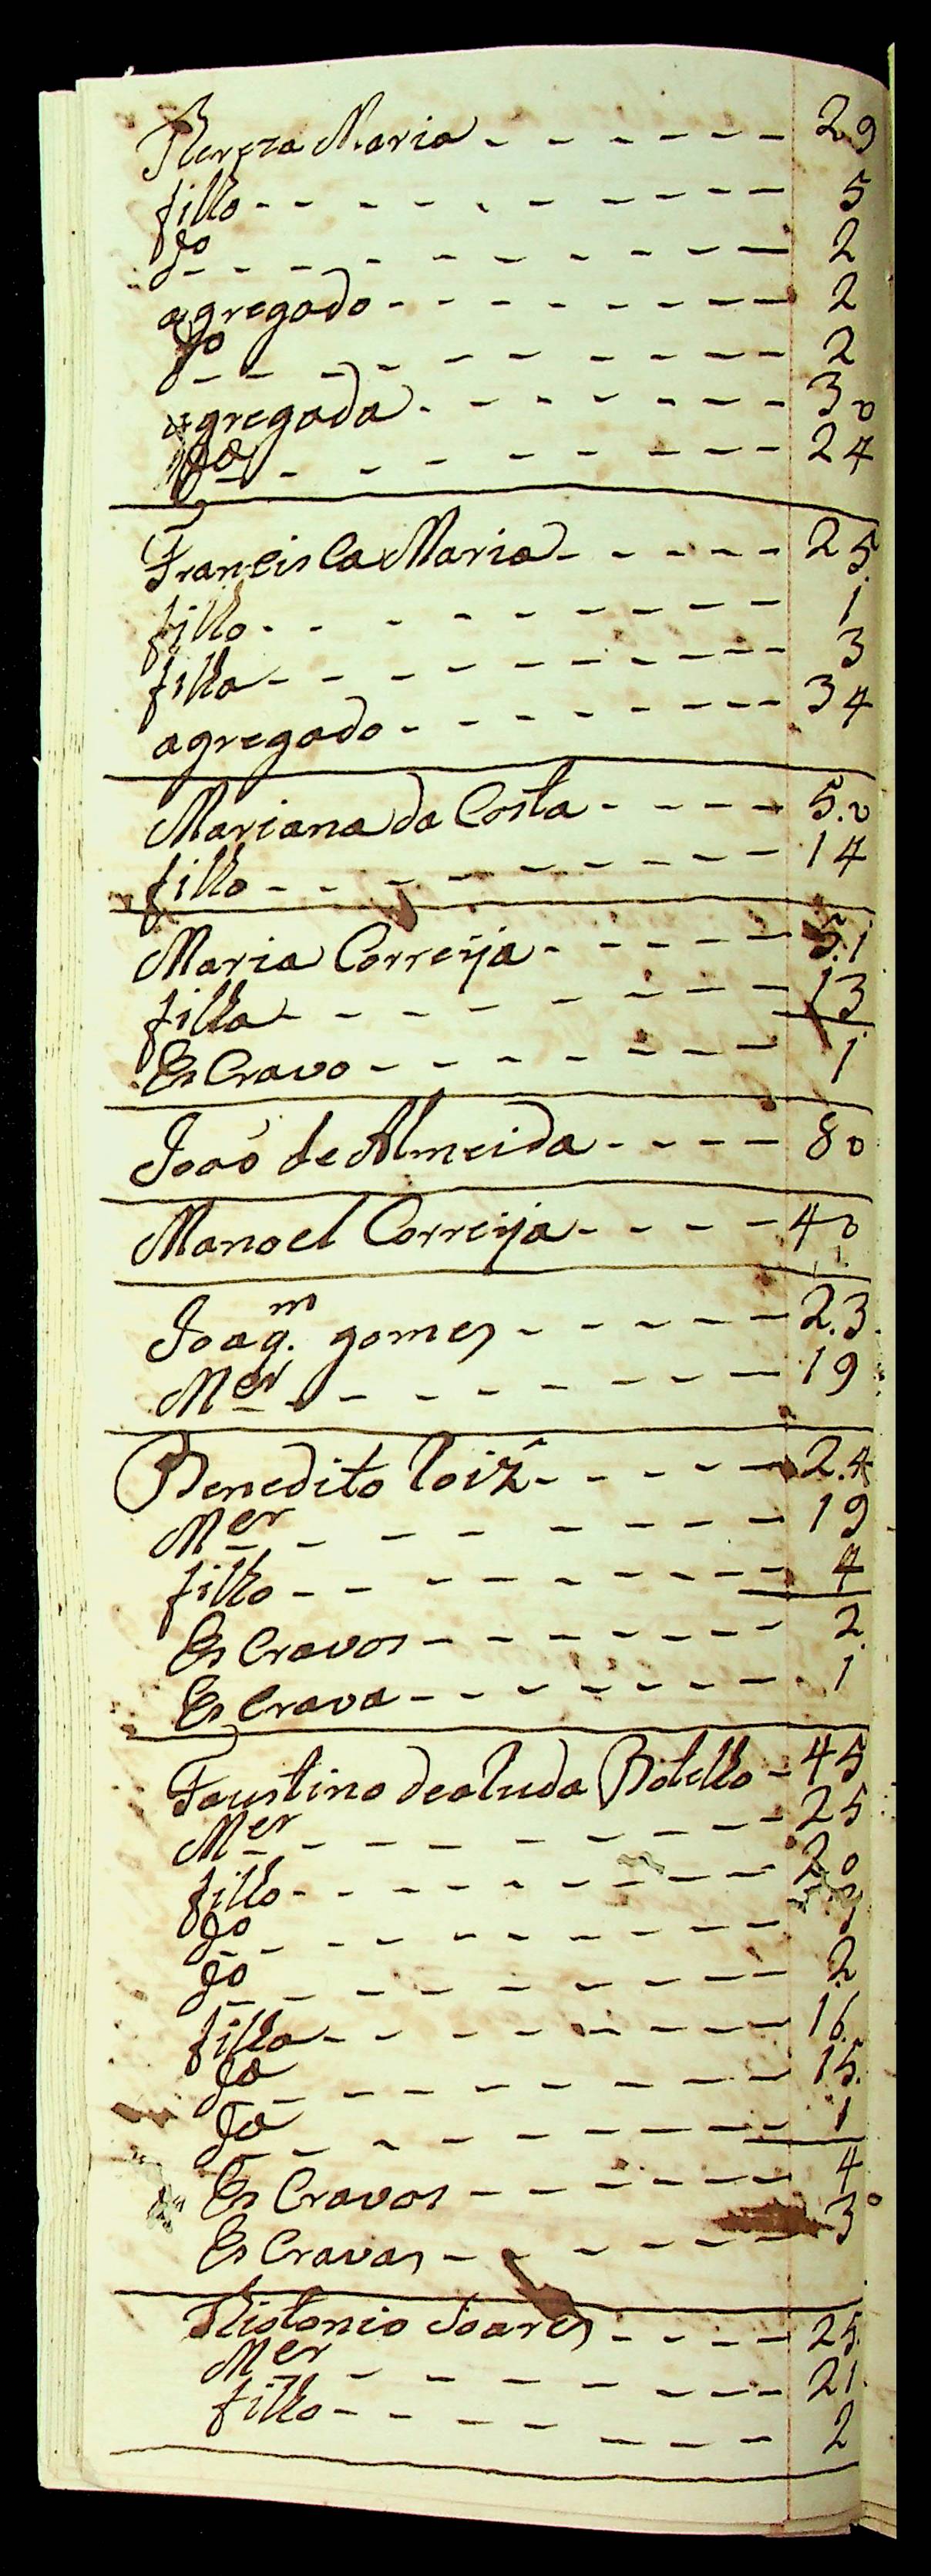 Thereza Maria - - - - - - 29
filho - - - - - - - - - 5
do - - - - - - - - - 2
agregado - - - - - - - - 2
do - - - - - - - - - 2
agregada - - - - - - - 30
da - - - - - - - - - 24
Francisca Maria - - - - - 25
filho - - - - - - - - - 1
filha - - - - - - - - - 3
agregado - - - - - - - 34
Mariana da Costa - - - - 50
filho - - - - - - - - - 14
Maria Correija - - - - - 51
filha - - - - - - - - - 13
EsCravo - - - - - - - 1
Joaõ de Almeida - - - - 80
Manoel Correija - - - - 40
Joaqm. gomes - - - - - 23
Mer - - - - - - - - 19
Benedito Loiz - - - - - 24
Mer - - - - - - - - 19
filho - - - - - - - - 4
EsCravos - - - - - - - 2
EsCrava - - - - - - - 1
Faustino Botelho - 45
Mer - - - - - - - - - 25
filho - - - - - - - - - 20
do - - - - - - - - -
do - - - - - - - - - 2
filha - - - - - - - - 16
da - - - - - - - - - 15
da - - - - - - - - - 1
EsCravos - - - - - - 4
EsCravas - - - - - - 3
Soares - - - - 25
Mer - - - - - - - 21
filho - - - - - - - - 2